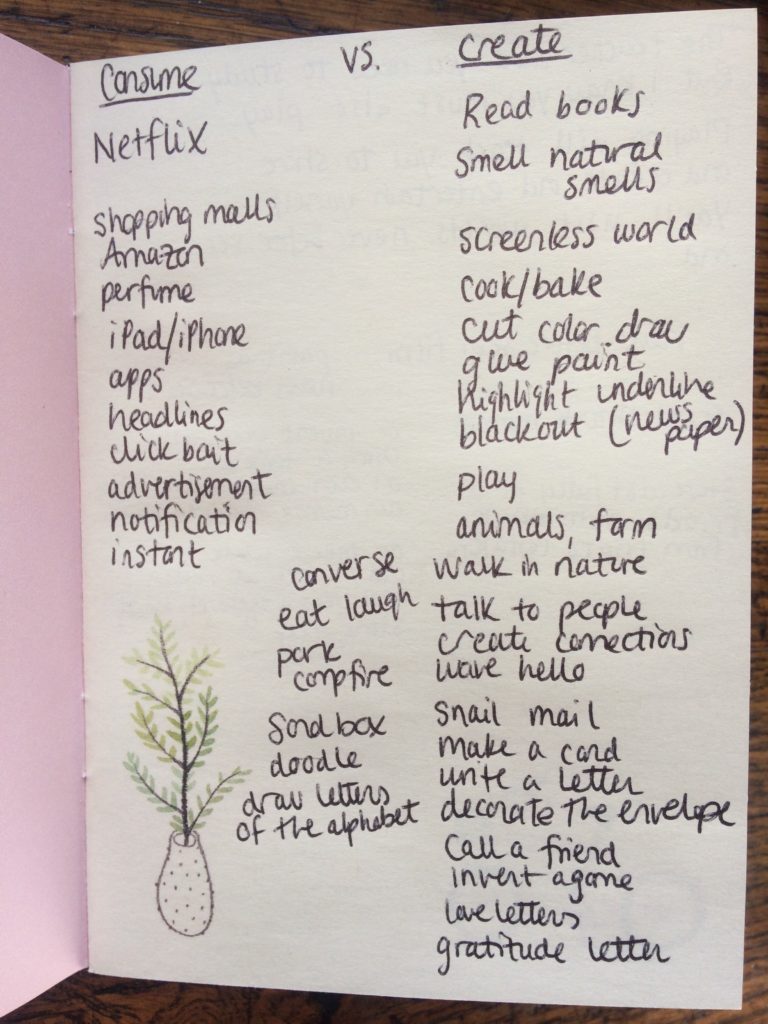 Consume vs. Create
Netflix
shopping malls
Amazon
perfume
iPad/iPhone
apps
headlines
click bait
advertisement
notification
instant
Read books
Smell natural
smells
screenless world
cook/bake
cut color draw
glue paint
highlight underline
blackout (news
paper)
play
animals, farm
walk in nature
talk to people
create connections
wave hello
snail mail
make a card
write a letter
decorate the envelope
call a friend
invent a game
love letters
gratitude letter
converse
eat laugh
park
campfire
Sandbox
doodle
draw letters
of the alphabet